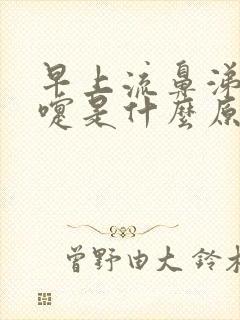 早上流鼻涕
嚏是什麼原
曾野由大 鈴木